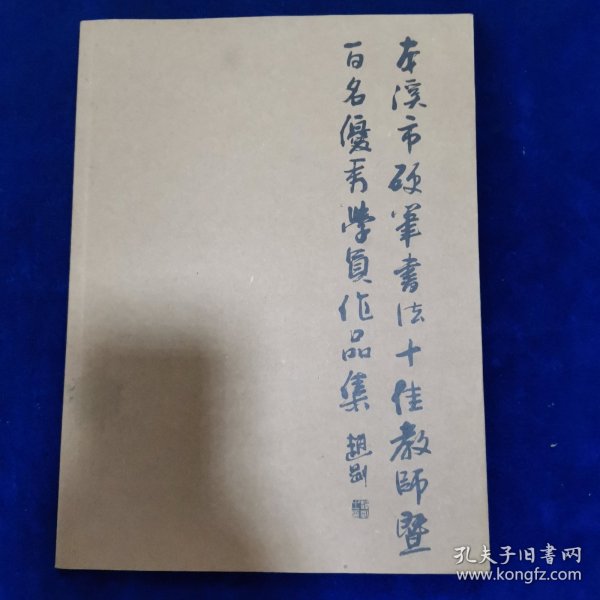 本溪市硬筆書法十佳教師暨
百名優秀學員作品集
趙
孔夫子旧書网
www.kongfz.com